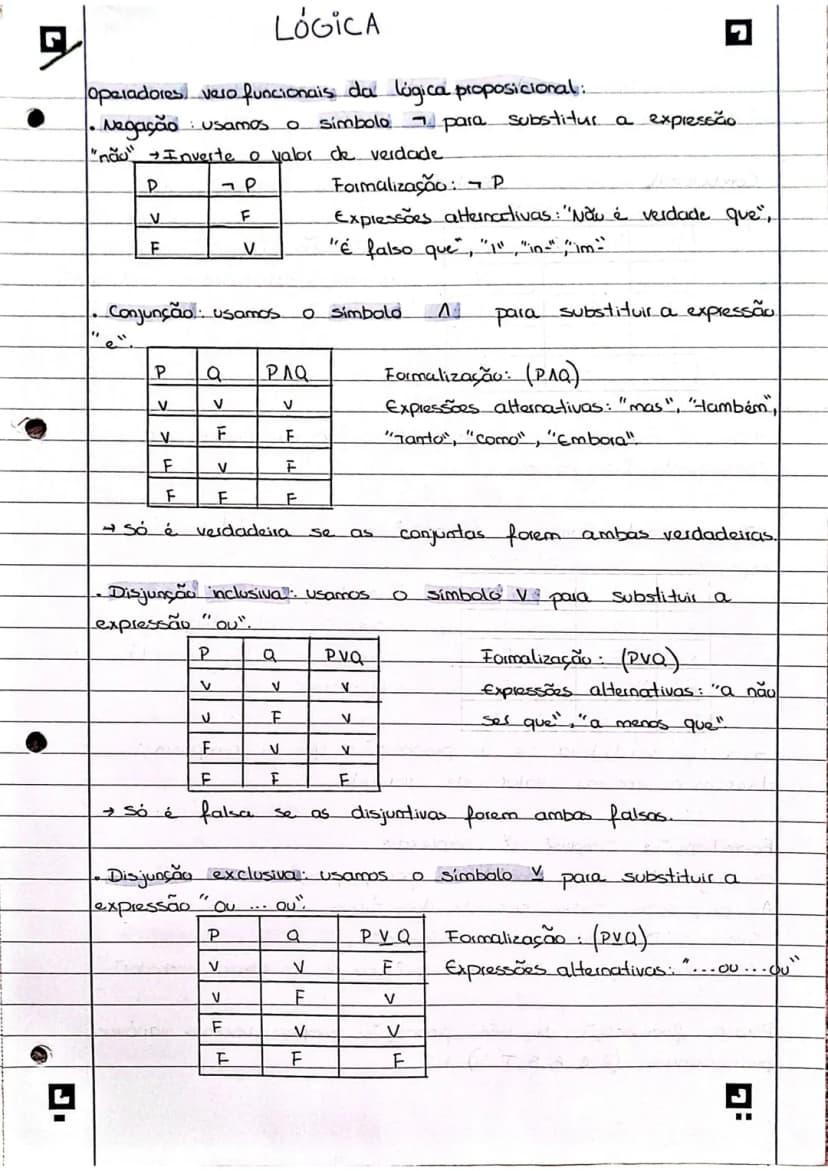 LÓGICA
Operadores verofuncionais da lógica proposicional:
• Negação: usamos o símbolo ¬ para substituir a expressão
"não" → Inverte o valor de verdade
P ¬ P
V F
F V
Formalização: ¬ P
Expressões alternativas: "Não é verdade que",
"É falso que", "i", "in-", "im-"
• Conjunção: usamos o símbolo Λ para substituir a expressão
"e".
P Q PΛQ
V V V
V F F
F V F
F F F
Formalização: (PΛQ)
Expressões alternativas: "mas", "também",
"Tanto", "como", "Embora".
→ Só é verdadeira se as conjuntas forem ambas verdadeiras.
• Disjunção inclusiva: usamos o símbolo V para substituir a
expressão "ou".
P Q PVQ
V V V
V F V
F V V
F F F
Formalização: (PVQ)
Expressões alternativas: "a não
ser que", "a menos que"
→ Só é falsa se as disjuntivas forem ambas falsas.
• Disjunção exclusiva: usamos o símbolo V̲ para substituir a
expressão "ou ... ou".
P Q P V̲ Q
V V F
V F V
F V V
F F F
Formalização: (PV̲Q)
Expressões alternativas: "...ou...ou"